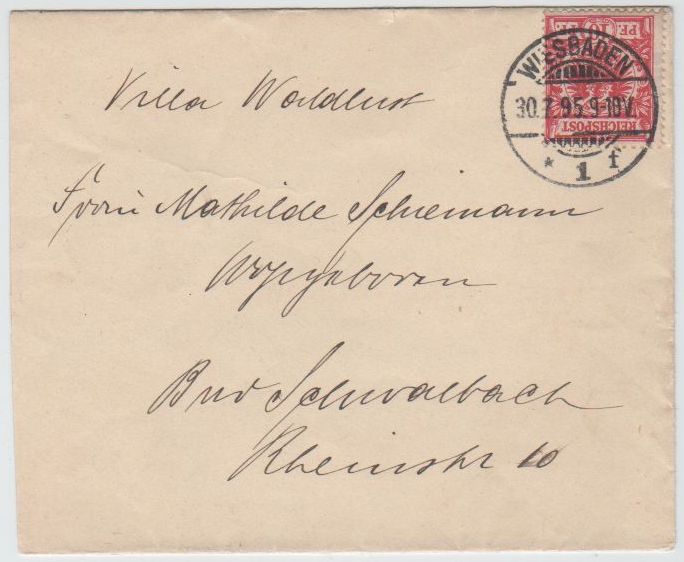 PF. 10 PF.
REICHSPOST
WIESBADEN
30.7.95.9-10V.
* 1 f
Villa Waldlust
Frau Mathilde Schiemann
Wohlgeboren
Bad Schwalbach
Rheinstr 10